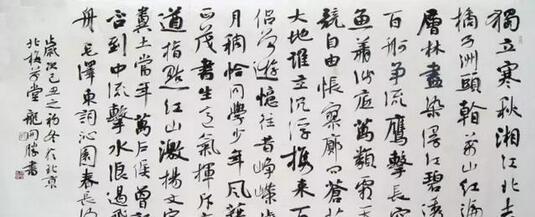 獨立寒秋湘江北去
橘子洲頭看萬山紅遍
層林盡染漫江碧透
百舸争流鷹擊長空
魚翔淺底萬類霜天
競自由悵寥廓問蒼
大地誰主沉浮攜來百
侣曾遊憶往昔崢嶸歲
月稠恰同學少年風華
正茂書生意氣揮斥方
遒指點江山激揚文字
糞土當年萬户侯曾記
否到中流擊水浪遏飛
舟毛澤東詞沁園春長沙
歲次己丑之初冬於北京